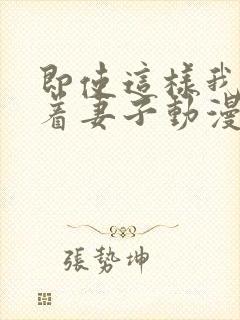 即使這樣我
著妻子動漫
張勢坤